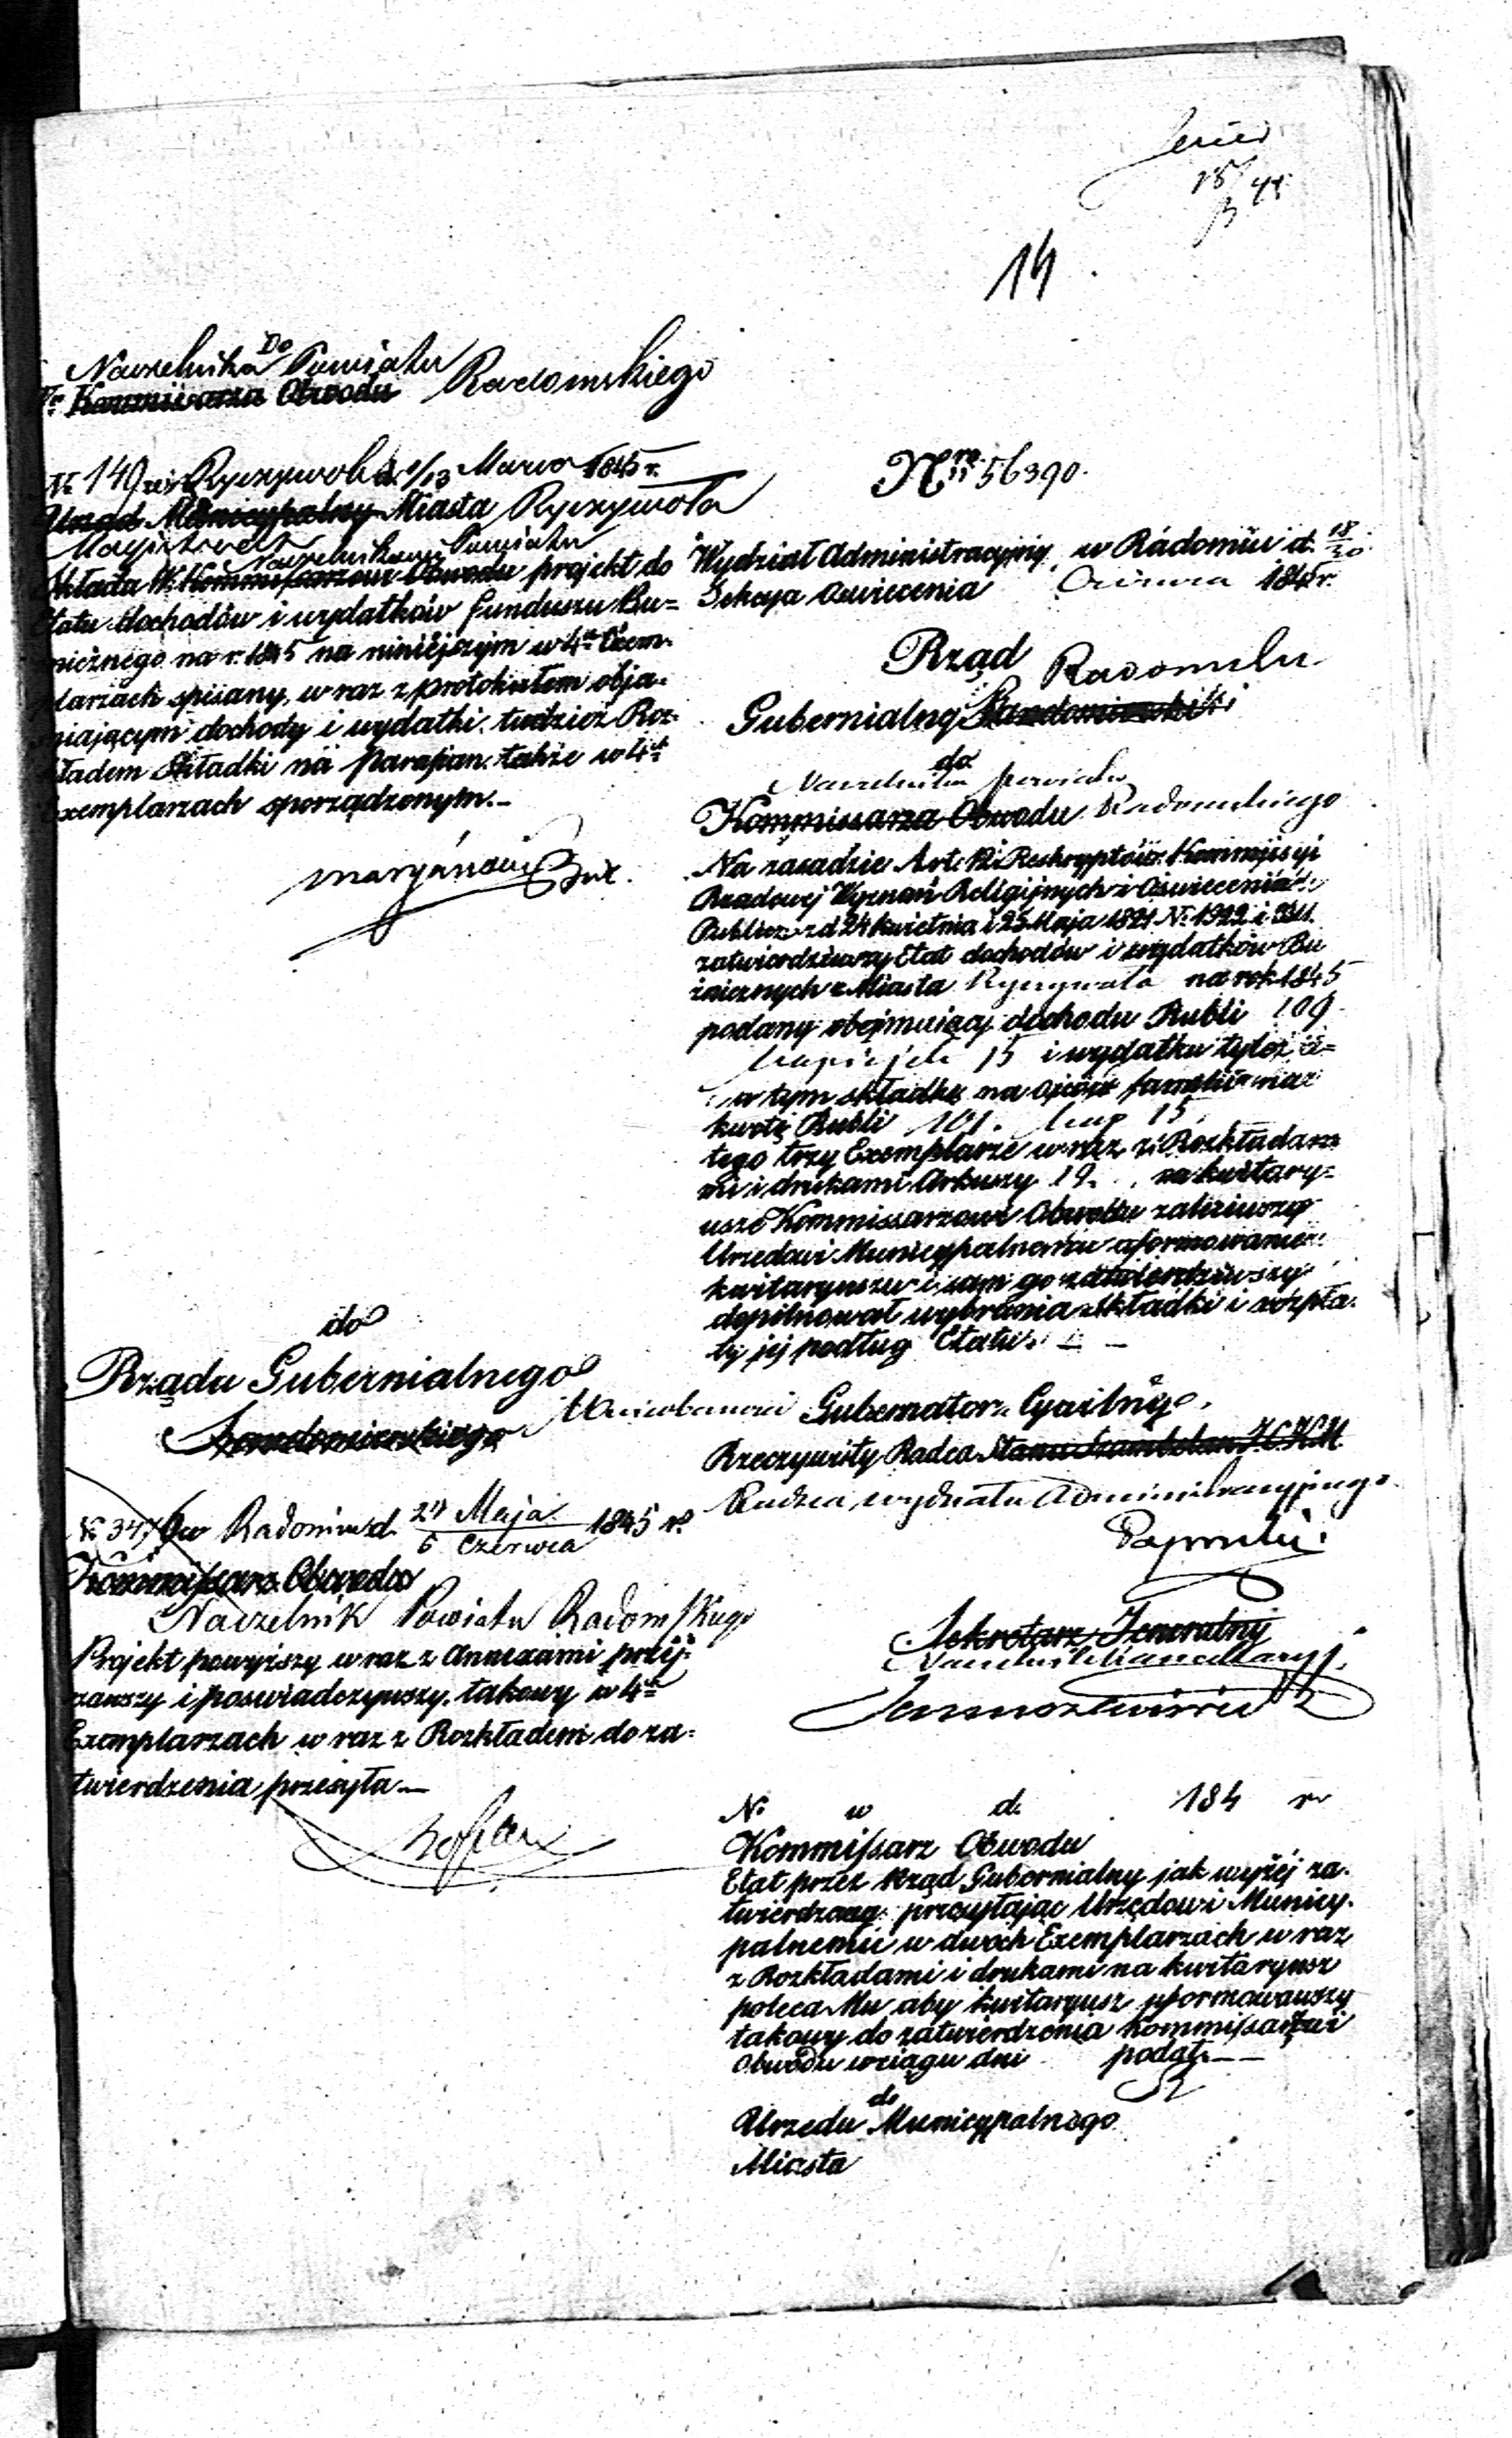 14
Do
Naczelnika Powiatu
Kommissarza Obwodu Radomskiego
Nr 149 w Ryczywole d. 1/13 Marca 1845 r.
Urząd Municypalny Miasta Ryczywoła
Magistrat
Naczelnikowi Powiatu
składa W. Kommissarzowi Obwodu projekt do
Etatu dochodów i wydatków funduszu Bu=
żnicznego na r. 1845 na niniejszym w 4ch Exem-
plarzach spisany, wraz z protokułem obja-
śniającym dochody i wydatki, tudzież Roz-
kładem składki na parafian także w 4ch
exemplarzach sporządzonym.—
do
Rządu Gubernialnego
Sandomierskiego
No 3476 w Radomiu d. 25 Maja / 6 Czerwca 1845 r.
Kommissarz Obwodu
Naczelnik Powiatu Radomskiego
Projekt powyższy wraz z Annexami przej-
rzawszy i poświadczywszy, takowy w 4ch
Exemplarzach wraz z Rozkładem do za-
twierdzenia przesyła—
Nro 56390.
Wydział Administracyjny w Radomiu d. 18/30
Sekcya Oświecenia Czerwca 1845 r.
Rząd
Gubernialny Sandomierski Radomski
do
Naczelnika powiatu
Kommissarza Obwodu Radomskiego
Na zasadzie Art. 12 i Reskryptów Kommissyi
Rządowej Wyznań Religijnych i Oświecenia
Publicz. z d. 24 Kwietnia i 25 Maja 1821 No 1922 i
zatwierdziwszy Etat dochodów i wydatków Bu
żnicznych z Miasta Ryczywoła na rok 1845
podany obejmujący dochodu Rubli 109
kopiejek 15 i wydatku tyleż a=
w tym składkę na ojców familii w raz
kwotę Rubli 101. kop 15.
tego trzy Exemplarze wraz z Rozkłada=
mi i drukami Arkuszy 12 na kwitary=
usze Kommissarzowi Obwodu zaleciwszy
Urzędowi Municypalnemu uformowanie
kwitaryuszu i sam go zatwierdziwszy
dopilnował wybrania składki i rozpła-
ty jej podług Etatu. —
Gubernator Cywilny
Rzeczywisty Radca Stanu Szambelan J. C. K. M.
Radca wydziału Administracyjnego
Sekretarz Jeneralny
Naczelnik Kancellaryi
No w d. 184 r.
Kommissarz Obwodu
Etat przez Rząd Gubernialny jak wyżéj za-
twierdzony przesyłając Urzędowi Municy-
palnemu w dwóch Exemplarzach wraz
z Rozkładami i drukami na kwitaryusz
poleca Mu aby kwitaryusz uformowawszy
takowy do zatwierdzenia Kommissarzowi
Obwodu w ciągu dni podał.—
do
Urzędu Municypalnego
Miasta